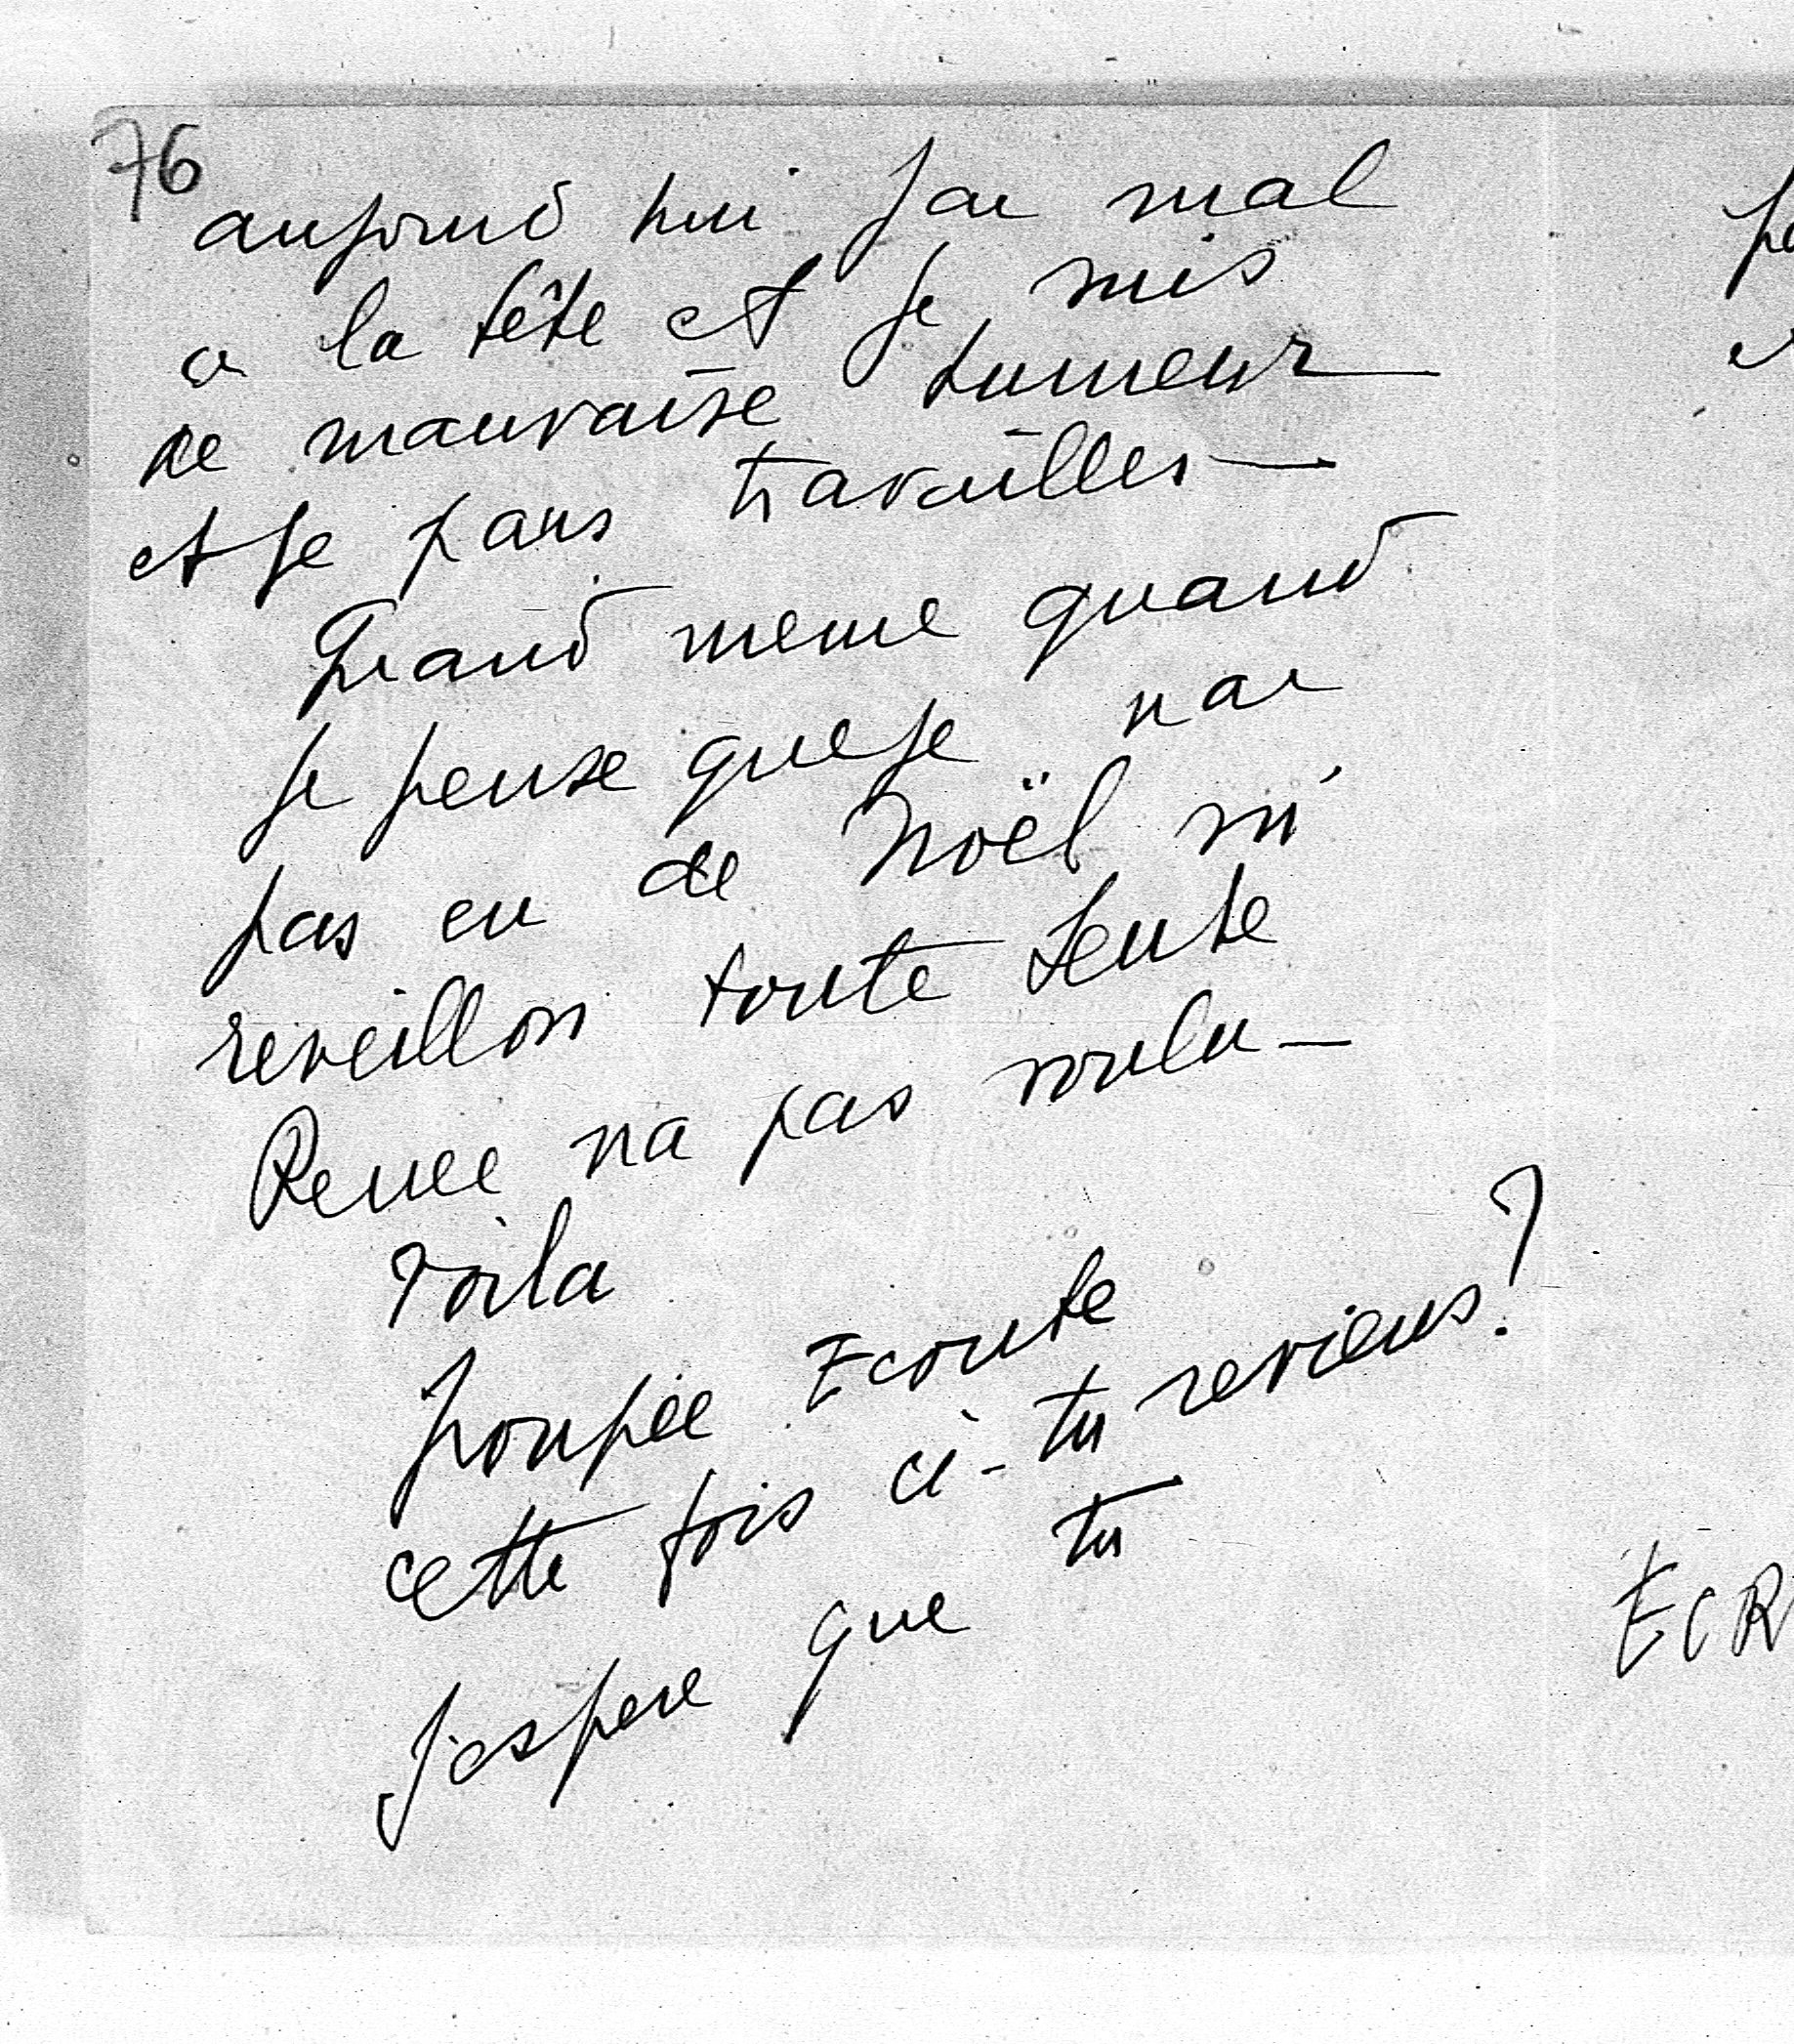 76
aujourd hui Jai mal
a la tête et Je suis
de mauvaise humeur
et Je pars travailler —
Quand meme quand
Je pense que Je nai
pas eu de Noël ni
reveillon toute seule
Renee na pas voulu —
Voila
poupée Ecoute
cette fois ci - tu reviens?
J'espere que tu
ECR